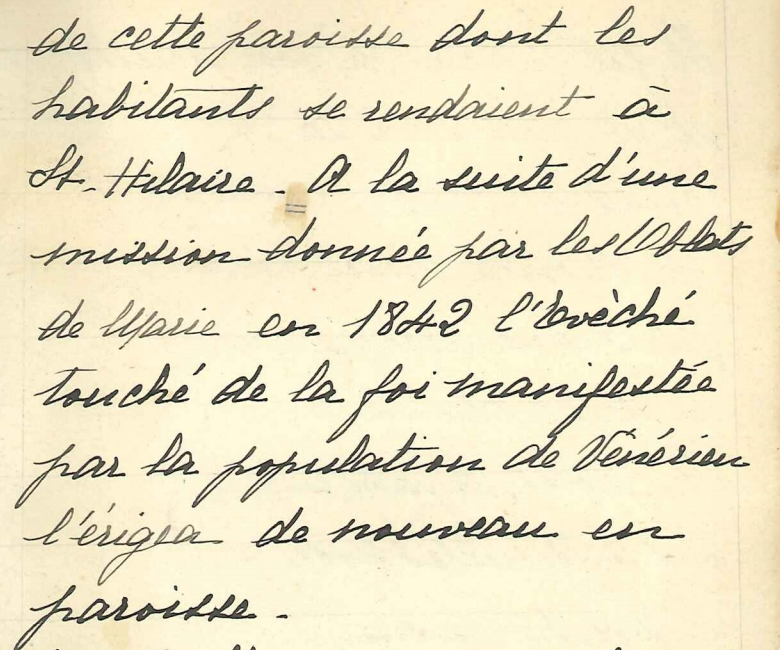 de cette paroisse dont les
habitants se rendaient à
St. Hilaire. A la suite d'une
mission donnée par les Oblats
de Marie en 1842 l'Evèché
touché de la foi manifestée
par la population de Vénérieu
l'érigea de nouveau en
paroisse.